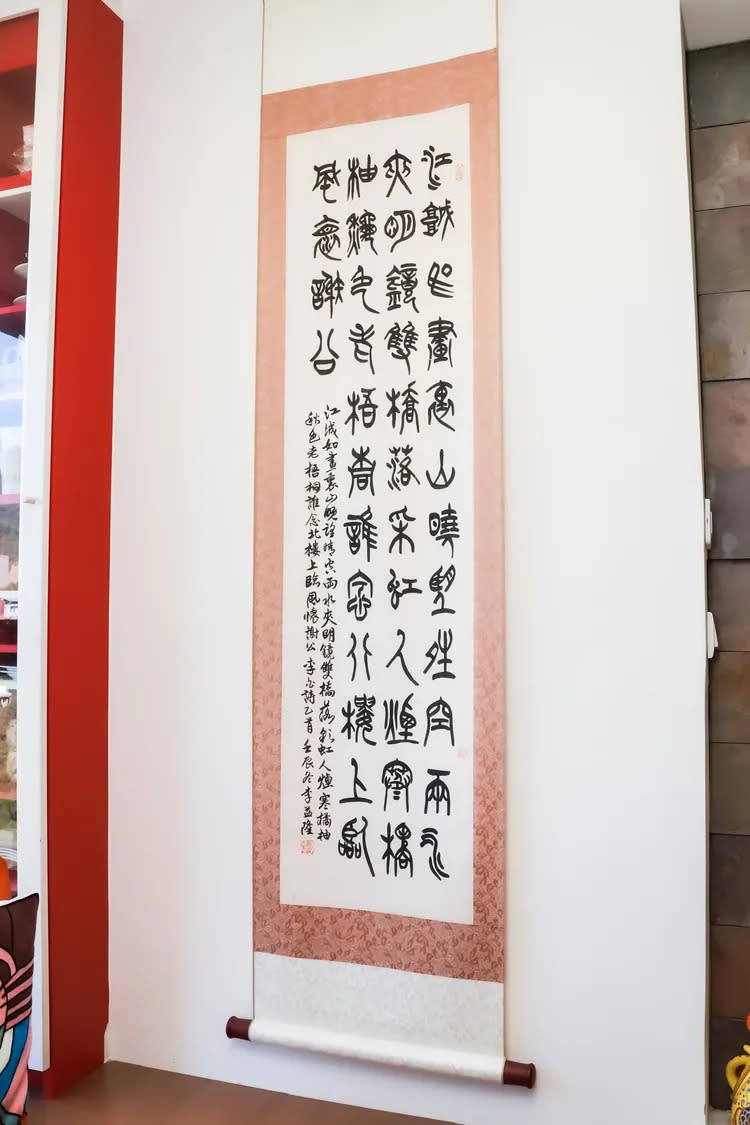 江城如畫裏山曉望晴空兩水
夾明鏡雙橋落采虹人煙寒橘
柚秋色老梧桐誰念北樓上臨
風懷謝公
江城如畫裏山晚望晴空雨水夾明鏡雙橋落彩虹人煙寒橘柚
秋色老梧桐誰念北樓上臨風懷謝公 李白詩乙首 壬辰冬李益隆